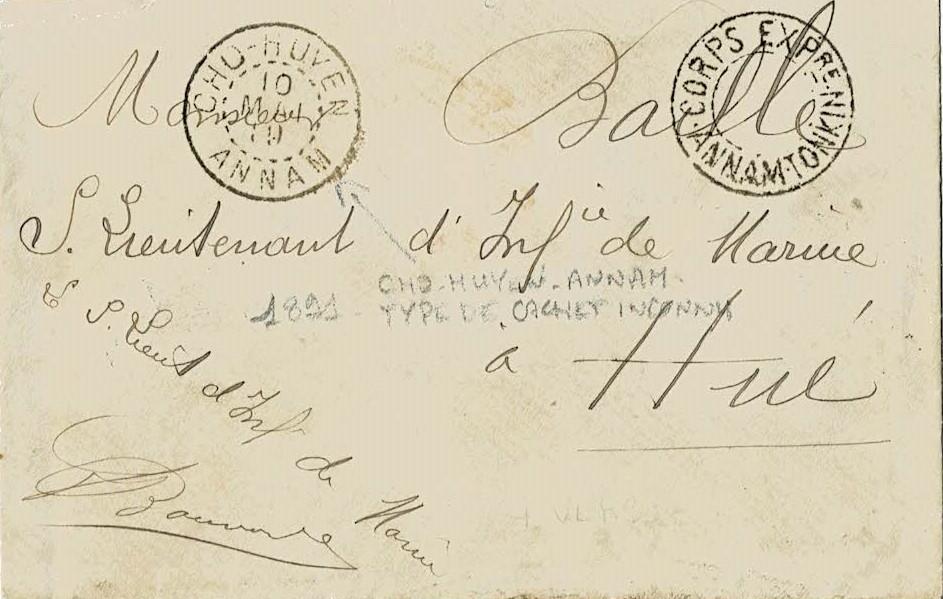 CHO-HUYEN
10
ANNAM
CORPS EXPRE-NN
ANNAM-TONKIN
Monsieur Baille
S. Lieutenant d' Inf.ie de Marine
CHO-HUYEN-ANNAM-
1891 - TYPE DE CACHET INCONNU
à Hué
S. Lieut d'Inf de Marine